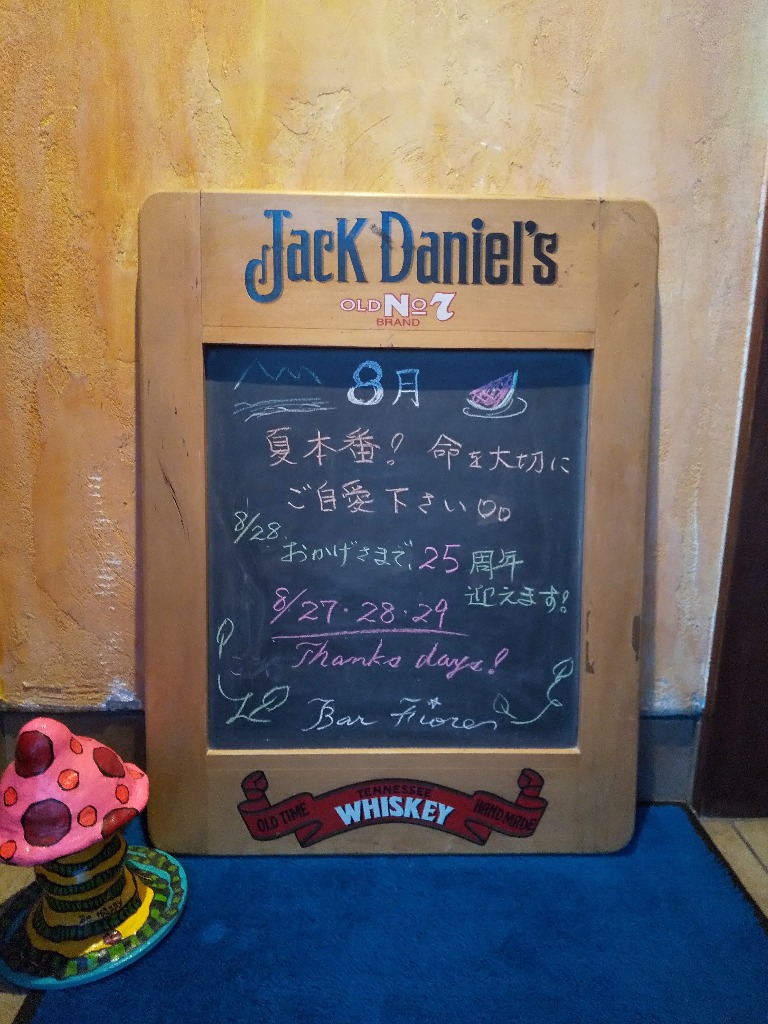 Jack Daniel's
OLD No 7
BRAND
8月
夏本番! 命を大切に
ご自愛下さい。。
8/28
おかげさまで、25周年
迎えます!
8/27・28・29
Thanks days!
Bar Fiore
TENNESSEE
OLD TIME WHISKEY HAND MADE